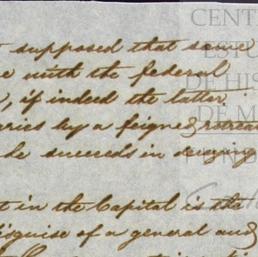 t supposed that some
e with the federal
, if indeed the latter
aries by a feigned retreat
he succeeds in drawing
t in the Capital is the
disguise of a general and
CENT
ESTU
DE HIS
DE M